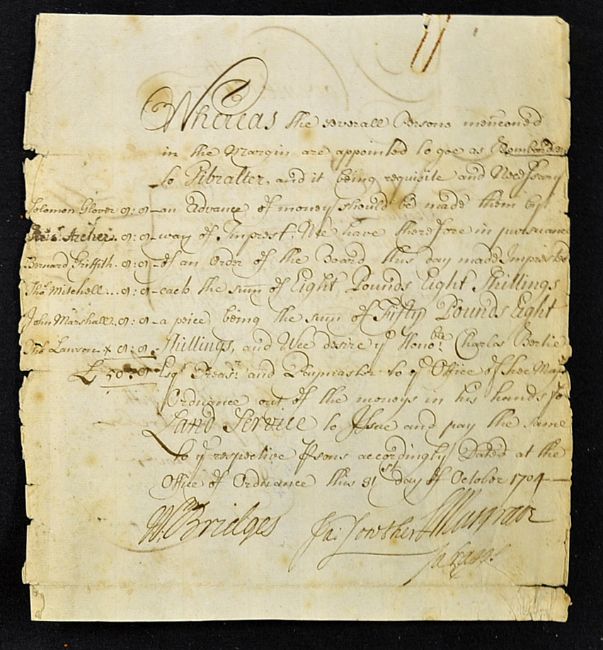 Whereas the severall Persons mencioned
in the Margin are appointed to goe as Bombardeers
to Gibralter, and it being requisite and Necessary
Solomon Glover 8: 8 - an Advance of money should be made them by
Archer 8: 8 - way of Imprest; We have therefore in pursuance
Bernard Griffith 8: 8 - of an Order of the Board this day made Imprested
Tho: Mitchell 8: 8 - each the sum of Eight Pounds Eight Shillings
John Marshall 8: 8 - a peice being the sum of Fifty Pounds Eight
Lawson 8: 8 Shillings, and Wee desire ye Honoble Charles Bertie
£50: 8 Esq Treasr and Paymaster to ye Office of her Maj
Ordnance out of the moneys in his hands for
Land Service to Issue and pay the same
to ye respective Psons accordingly Dated at the
Office of Ordnance this 31st day of October 1704
W Bridges Ja: Lowther